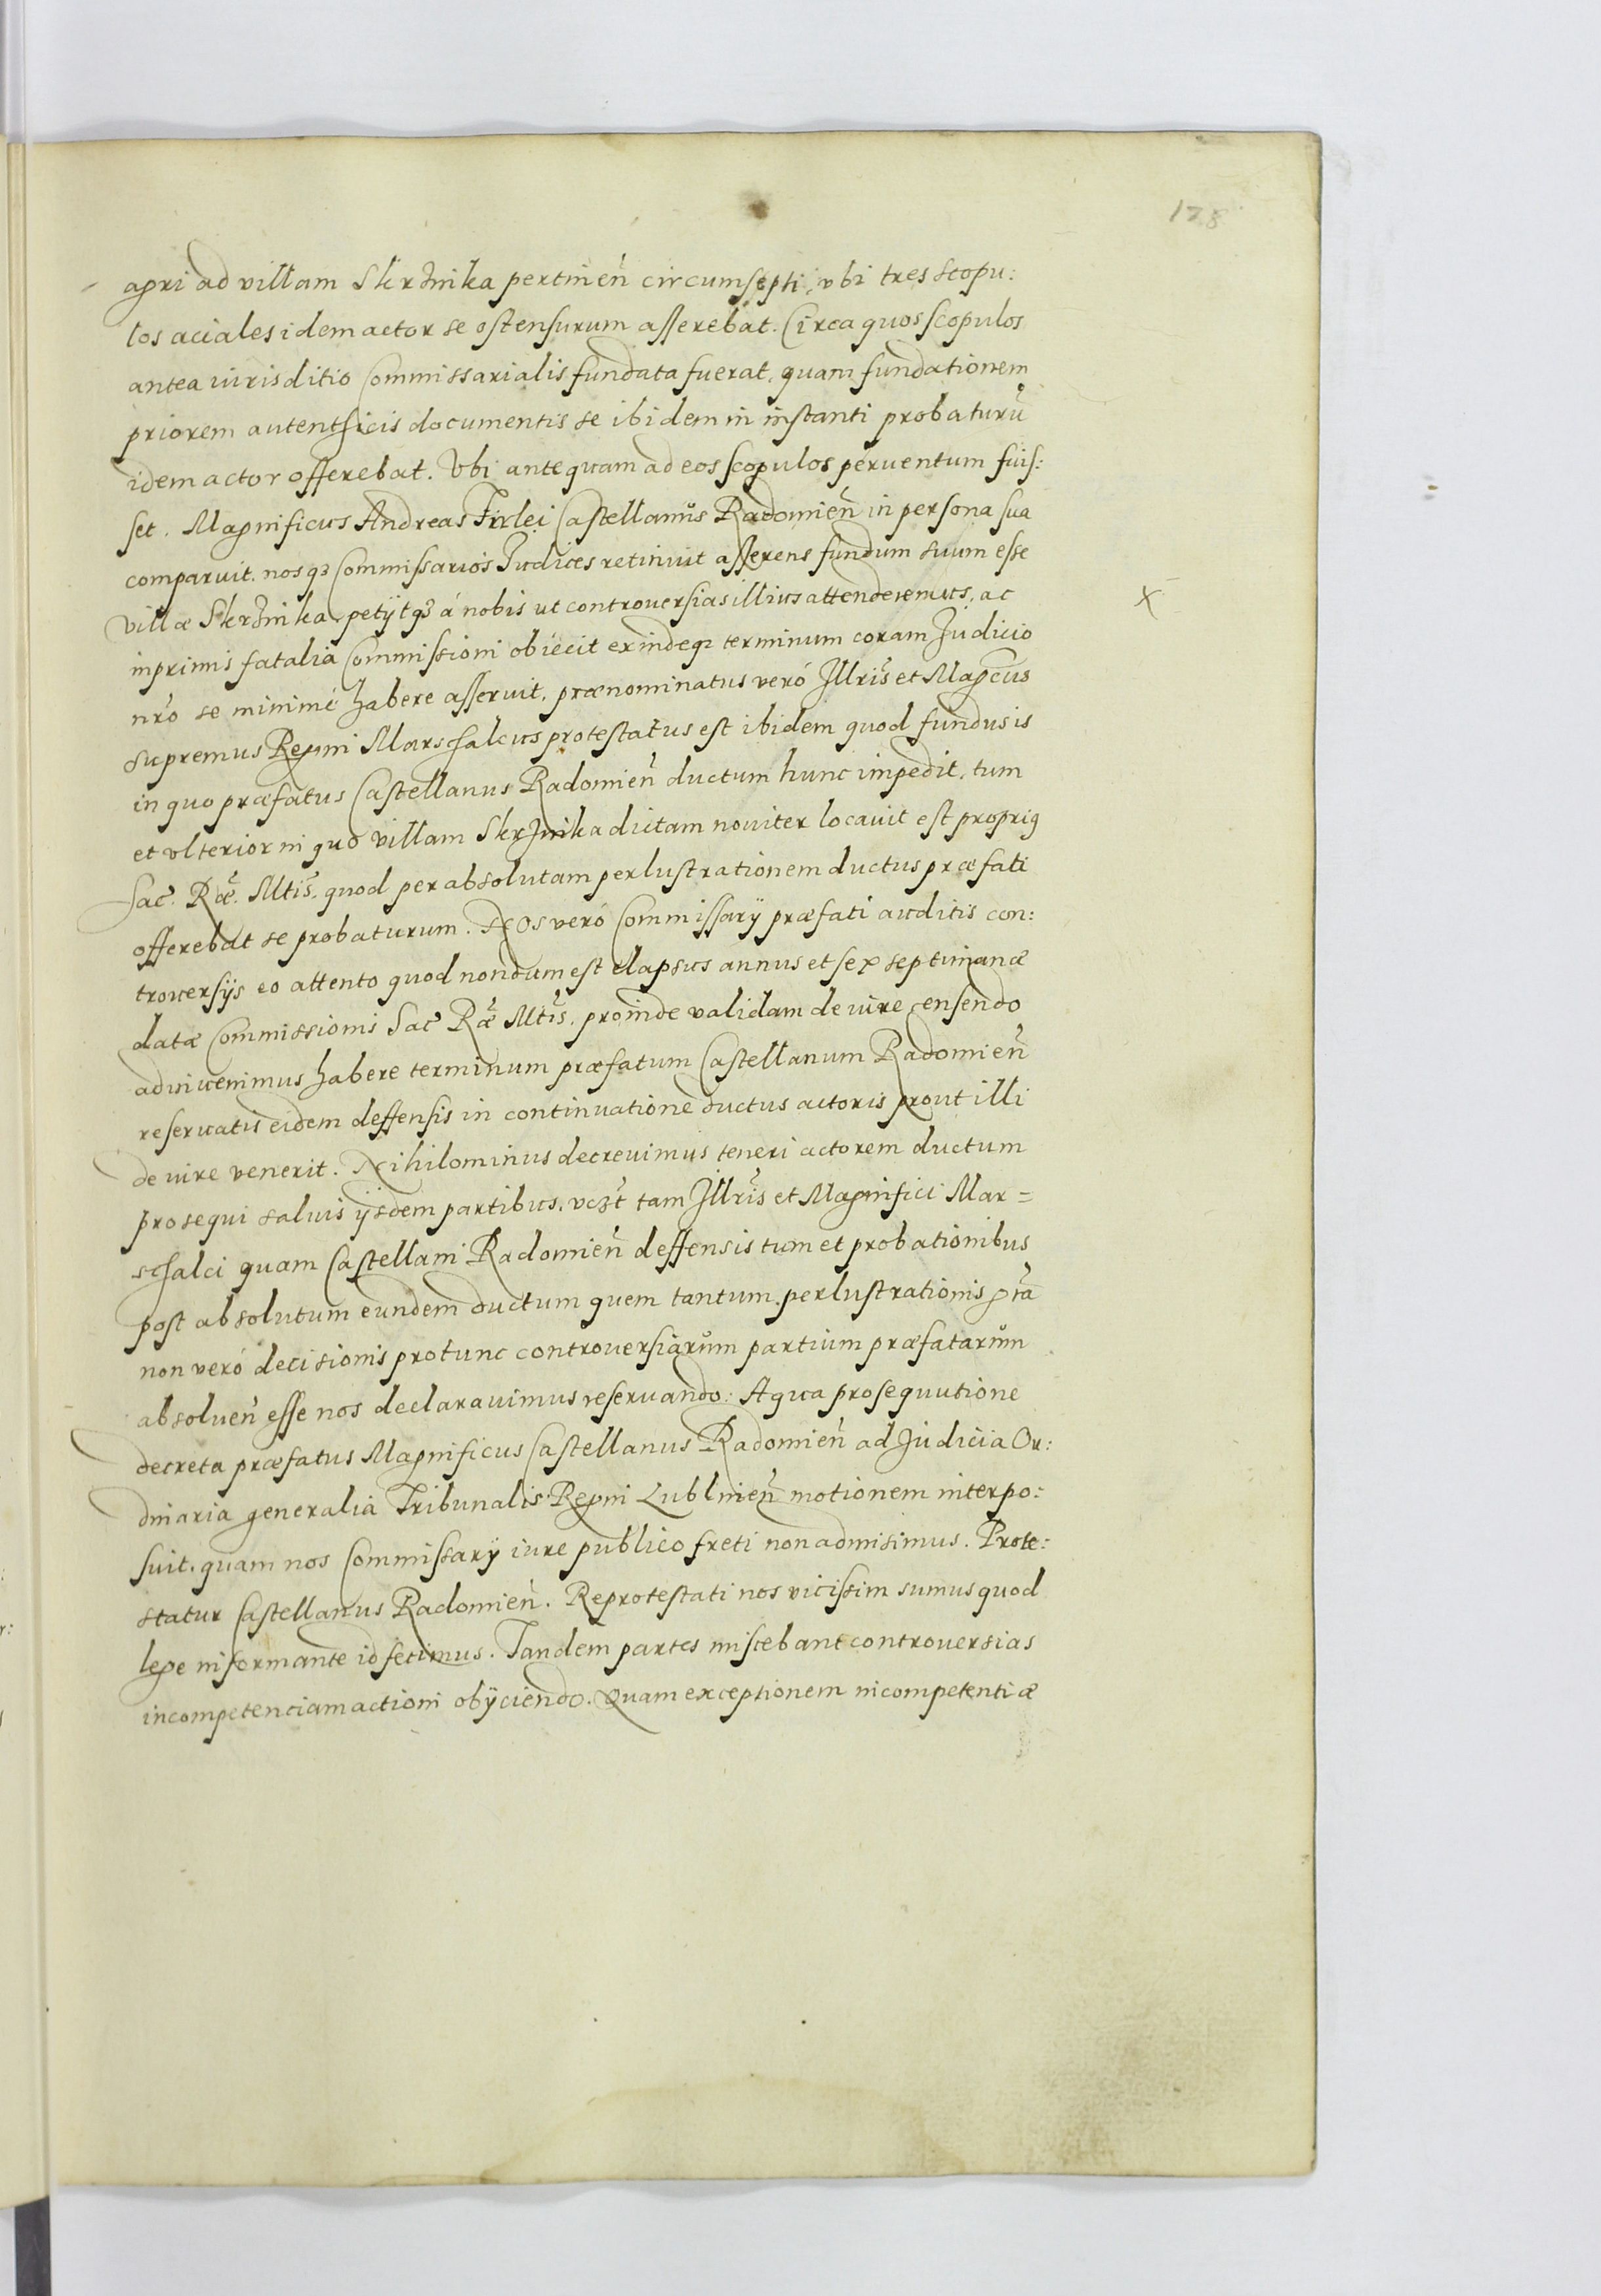 128
agri ad villam Skrzinika pertinen̄ circumsepti, vbi tres scopu:
los aciales idem actor se ostensurum asserebat. Circa quos scopulos
antea iurisditio Commissarialis fundata fuerat, quam fundationem
priorem autenthicis documentis se ibidem in instanti probaturū
idem actor offerebat. Vbi antequam ad eos scopulos peruentum fuis:
set. Magnificus Andreas Firlei Castellanus Radomien̄ in persona sua
comparuit. nosqꝫ Commissarios Iudices retinuit asserens fundum suum esse
villæ Skrzinika, petijtqꝫ á nobis ut controuersias illius attenderemus, ac
inprimis fatalia Commissioni obiecit exindeqꝫ terminum coram Judicio
nr̄o se minimé habere asseruit. prænominatus veró Jllris̄ et Magcūs
supremus Regni Marschalcus protestatus est ibidem quod fundus is
in quo præfatus Castellanus Radomien̄ ductum hunc impedit, tum
et vlterior in quo villam Skrzinika dictam nouiter locauit est proprig
Sac̄. Rǣ. Mtis̄. quod per absolutam perlustrationem ductus præfati
offerebat se probaturum. Nos veró Commissarÿ præfati auditis con:
trouersijs eo attento quod nondum est elapsus annus et sex septimanæ
datæ Commissionis Sac̄ Rǣ Mtis̄. proinde validam de iure censendo
adinuenimus habere terminum præfatum Castellanum Radomien̄
reseruatis eidem deffensis in continuatione ductus actoris prout illi
de iure venerit. Nihilominus decreuimus teneri actorem ductum
prosequi saluis ijsdem partibus, vcꝫt̄ tam Jllris̄ et Magnifici Mar=
schalci quam Castellani Radomien̄ deffensis tum et probationibus
post absolutum eundem ductum quem tantum perlustrationis gr̄a
non veró decisionis protunc controuersiarum partium præfatarum
absoluen̄ esse nos declarauimus reseruando: A qua prosequutione
decreta præfatus Magnificus Castellanus Radomien̄ ad Judicia Or:
dinaria generalia Tribunalis Regni Lublinien̄ motionem interpo:
suit. quam nos Commissarÿ iure publico freti non admisimus. Prote:
statur Castellanus Radomien̄. Reprotestati nos vicissim sumus quod
lege informante id fecimus. Tandem partes miscebant controuersias
incompetenciam actioni obijciendo. Quam exceptionem incompetentiæ